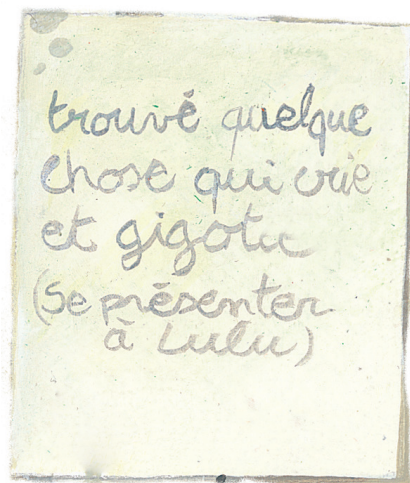 trouvé quelque
chose qui crie
et gigote
(se présenter
à Lulu)